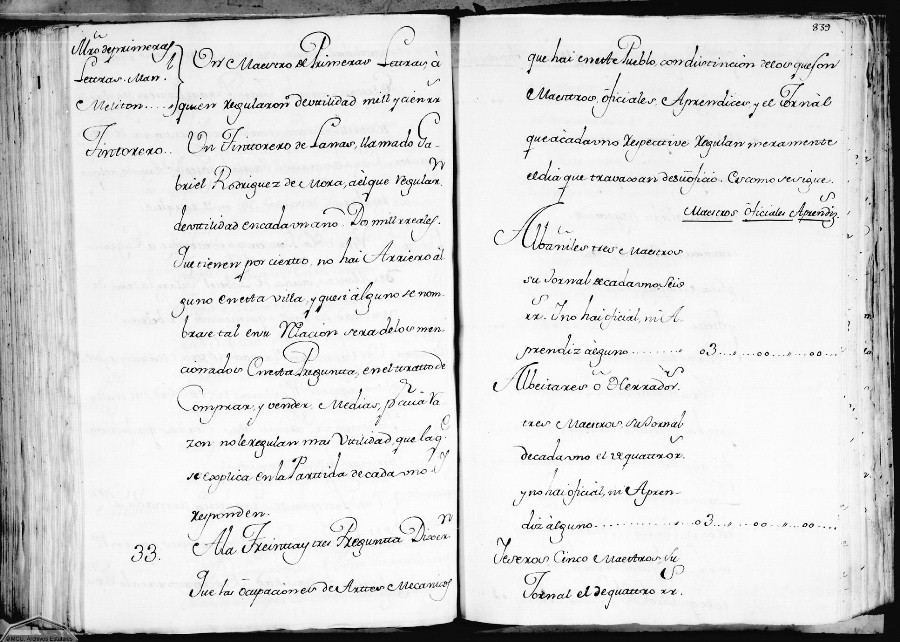 Mro de primeras
Letras. Man.
Meliton.....
Un Maestro de Primeras Letras, à
quien regularon de utilidad mill y cien rr
Tintorero..
Un Tintorero de Lanas, llamado Ga-
briel Rodriguez de Mora, aèl que regular.n
de utilidad en cada un año Dos mill rreales.
Que tienen por cierto, no hai Arriero àl
guno en esta villa, y que si alguno se nom-
brase tal en su Relacion sera de los men-
cionados en esta Pregunta, en el tratto de
Comprar, y vender Medias, p.r cuia Ra-
zon no le regulan mas Utilidad, que la q.e
se expplica en la Parttida de cada uno. Y
responden.
33.
A la Treinta y tres Pregunta Dixer.n
Que las ocupaciones de Arttes Mecanicos
839
que hai en este Pueblo, con distincion de los que son
Maestros, òficiales, Aprendices, y el Jornàl
que à cada uno respective regulan meramente
el dia que travaxan de su òficio. Es como se sigue.
Maestros òficiales Aprendiz.s
Albañiles tres Maestros
su Jornal de cada uno, seis
rr.s Y no hai oficial, ni A-
prendiz àlguno......... 03..,,..00..,,..00...
Albeitares ò Herrador.s
tres Maestros, su Jornal
de cada uno el de quattro r.s
y no hai oficial, ni Apren-
diz àlguno.............,,..03..,,..00..,,..00....
Teseros Cinco Maestros, su
Jornal el de quattro rr.s
©MCU. Archivos Estatales